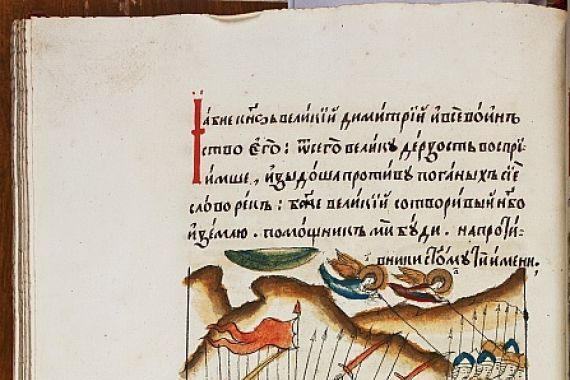 Їабие кн҃зь великїй димитрїй ивсевоинъ
ство его : ѿсего велику дерзость воспрї
имше , иꙁыдоша противу поганыхъ сїе
слово рекъ : бж҃е великїй сотворивый нб҃о
иꙁемлю . помощникъ ми буди . напроти:
вники твому имени .